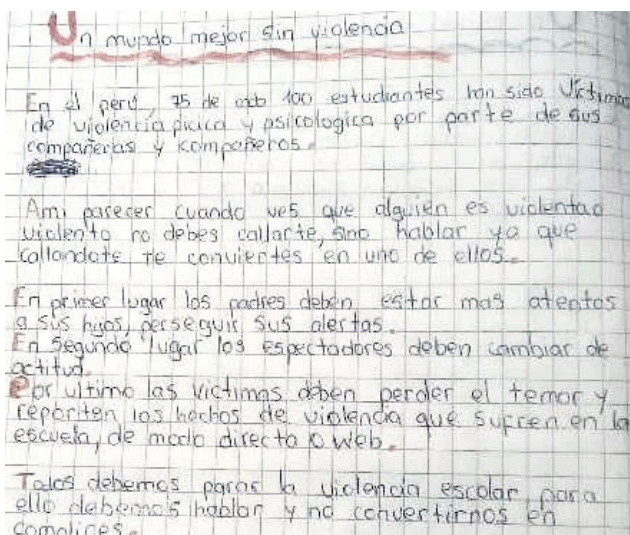 Un mundo mejor sin violencia
En el perú, 75 de cada 100 estudiantes han sido Victimas
de violencia fisica y psicologica por parte de sus
compañeras y kompañeros.
Ami parecer cuando ves que alguien es violentad
violento no debes callarte, sino hablar ya que
callandote te conviertes en uno de ellos.
En primer lugar los padres deben estar mas atentos
a sus hijos, perseguir sus alertas.
En segundo lugar los espectadores deben cambiar de
actitud.
Por ultimo las victimas deben perder el temor y
reporten los hechos de violencia que sufren en la
escuela, de modo directa o web.
Todos debemos parar la violencia escolar para
ello debemos hablar y no convertirnos en
complices.